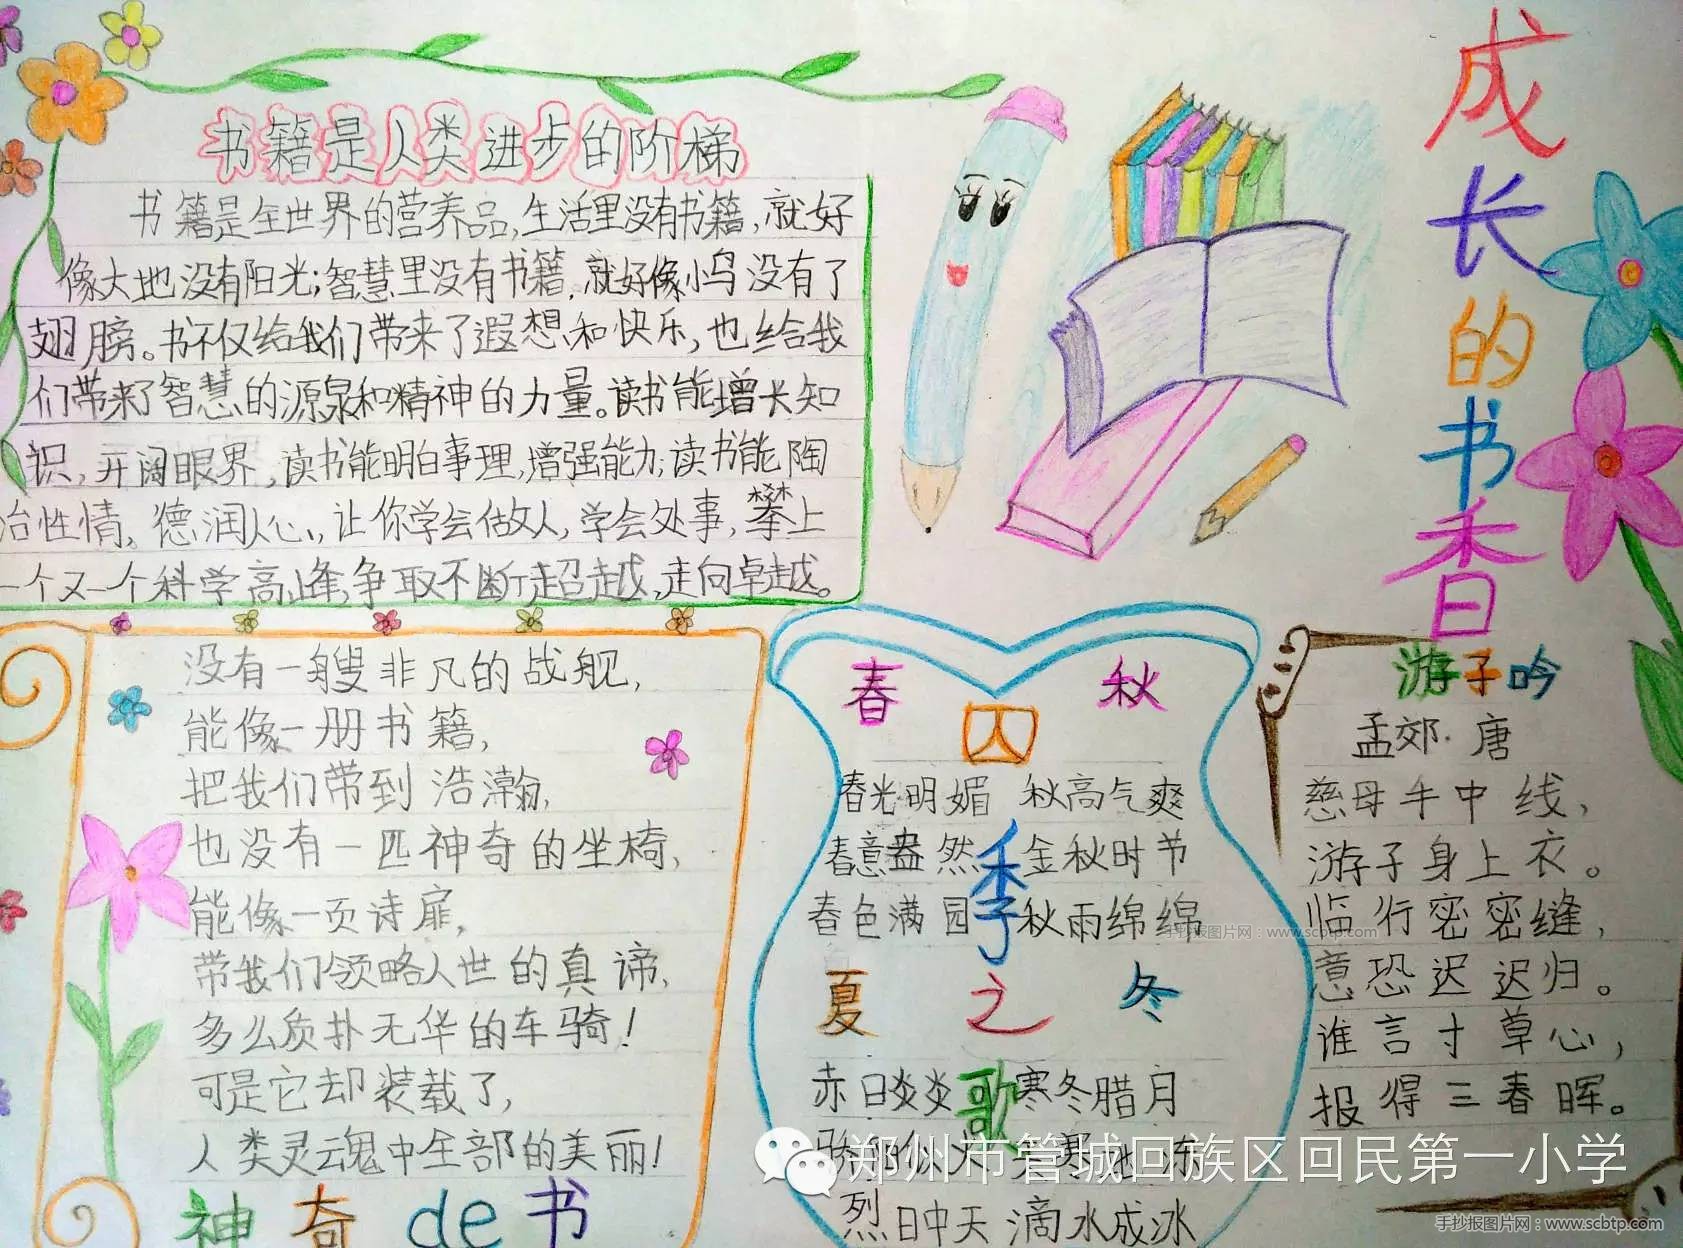 成长的书香
书籍是人类进步的阶梯
书籍是全世界的营养品,生活里没有书籍,就好
像大地没有阳光;智慧里没有书籍,就好像小鸟没有了
翅膀。书不仅给我们带来了遐想和快乐,也给我
们带来了智慧的源泉和精神的力量。读书能增长知
识,开阔眼界,读书能明白事理,增强能力;读书能陶
冶性情,德润人心,让你学会做人,学会处事,攀上
一个又一个科学高峰,争取不断超越,走向卓越。
没有一艘非凡的战舰,
能像一册书籍,
把我们带到浩瀚,
也没有一匹神奇的坐椅,
能像一页诗扉,
带我们领略人世的真谛,
多么质扑无华的车骑!
可是它却装载了,
人类灵魂中全部的美丽!
神奇de书
四季之歌
春
春光明媚
春意盎然
春色满园
秋
秋高气爽
金秋时节
秋雨绵绵
夏
赤日炎炎
骄阳似火
烈日中天
冬
寒冬腊月
天寒地冻
滴水成冰
游子吟
孟郊·唐
慈母手中线,
游子身上衣。
临行密密缝,
意恐迟迟归。
谁言寸草心,
报得三春晖。
手抄报图片网:www.scbtp.com
郑州市管城回族区回民第一小学
手抄报图片网:www.scbtp.com